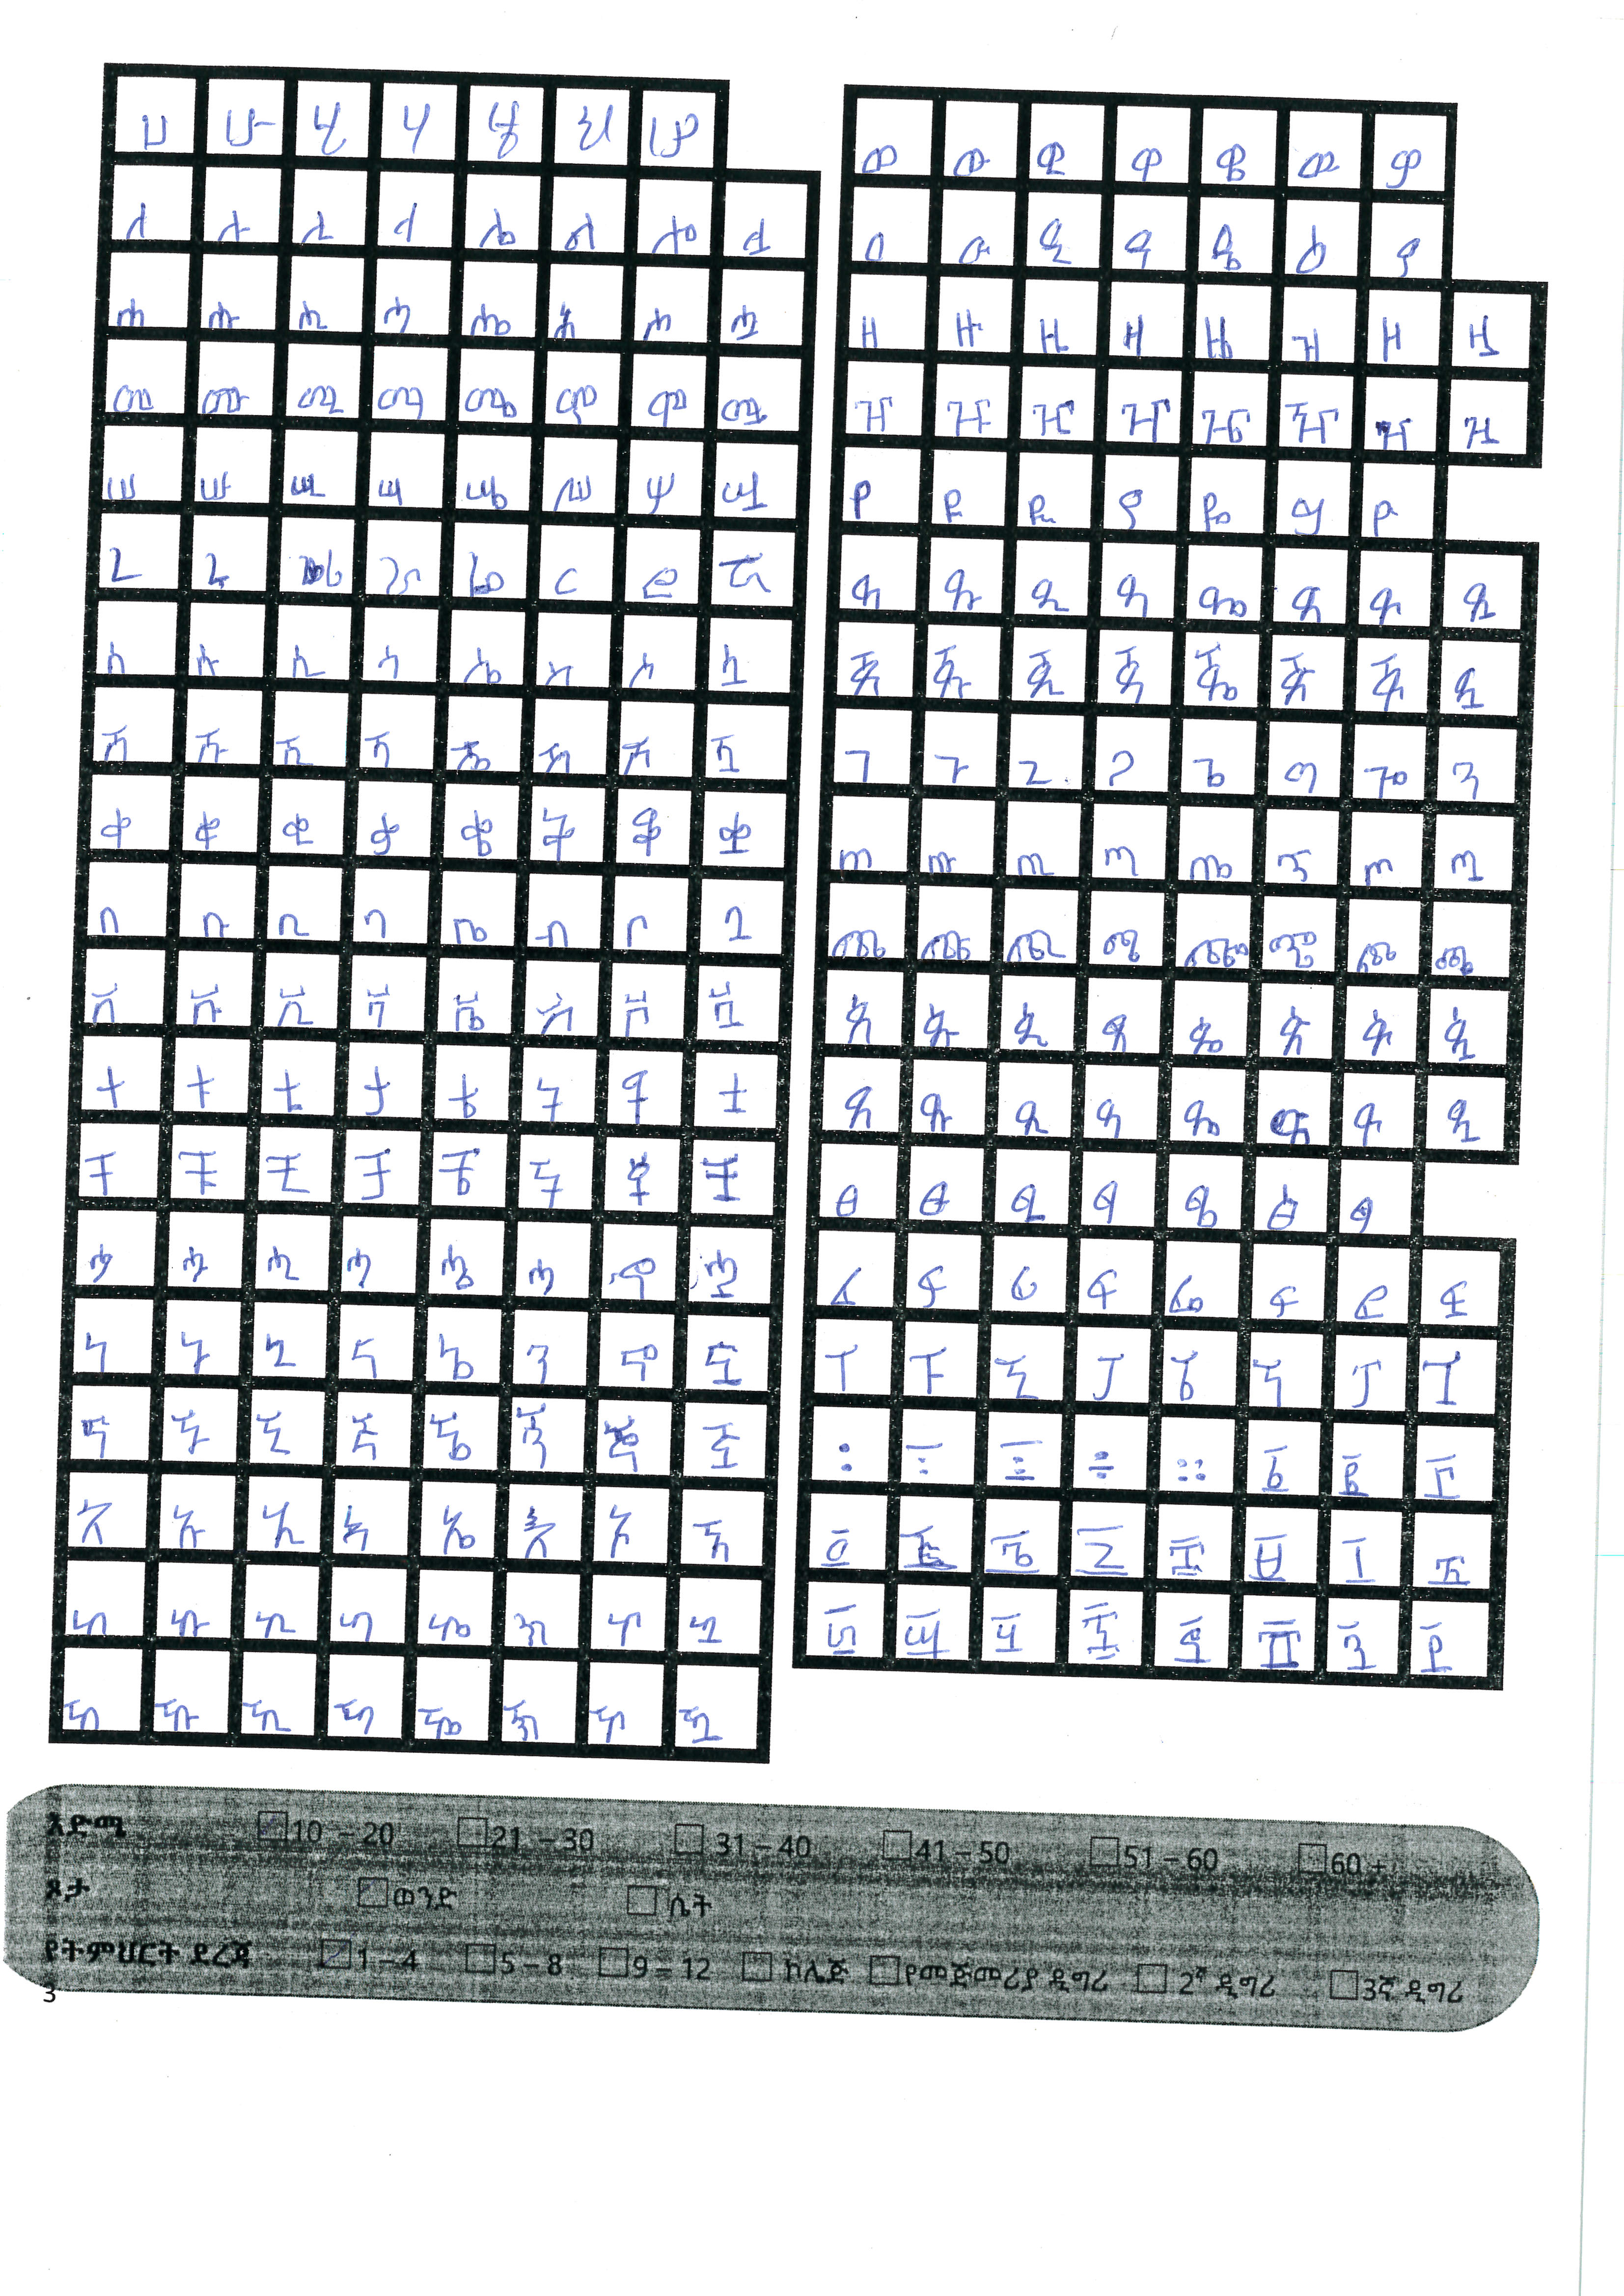 ሀ ሁ ሂ ሃ ሄ ህ ሆ
ለ ሉ ሊ ላ ሌ ል ሎ ሏ
ሐ ሑ ሒ ሓ ሔ ሕ ሖ ሗ
መ ሙ ሚ ማ ሜ ም ሞ ሟ
ሠ ሡ ሢ ሣ ሤ ሥ ሦ ሧ
ረ ሩ ራ ሬ ር ሮ ሯ
ሰ ሱ ሲ ሳ ሴ ስ ሶ ሷ
ሸ ሹ ሺ ሻ ሼ ሽ ሾ ሿ
ቀ ቁ ቂ ቃ ቄ ቅ ቆ ቋ
በ ቡ ቢ ባ ቤ ብ ቦ ቧ
ቨ ቩ ቪ ቫ ቬ ቭ ቮ ቯ
ተ ቱ ቲ ታ ቴ ት ቶ ቷ
ቸ ቹ ቺ ቻ ቼ ች ቾ ቿ
ኀ ኁ ኂ ኃ ኄ ኅ ኆ ኋ
ነ ኑ ኒ ና ኔ ን ኖ ኗ
ኘ ኙ ኚ ኛ ኜ ኝ ኞ ኟ
አ ኡ ኢ ኣ ኤ እ ኦ ኧ
ከ ኩ ኪ ካ ኬ ክ ኮ ኳ
ኸ ኹ ኺ ኻ ኼ ኽ ኾ ዃ
ወ ዉ ዊ ዋ ዌ ው ዎ
ዐ ዑ ዒ ዓ ዔ ዕ ዖ
ዘ ዙ ዚ ዛ ዜ ዝ ዞ ዟ
ዠ ዡ ዢ ዣ ዤ ዥ ዦ ዧ
የ ዩ ዪ ያ ዬ ይ ዮ
ደ ዱ ዲ ዳ ዴ ድ ዶ ዷ
ጀ ጁ ጂ ጃ ጄ ጅ ጆ ጇ
ገ ጉ ጊ ጋ ጌ ግ ጎ ጓ
ጠ ጡ ጢ ጣ ጤ ጥ ጦ ጧ
ጨ ጩ ጪ ጫ ጬ ጭ ጮ ጯ
ጰ ጱ ጲ ጳ ጴ ጵ ጶ ጷ
ጸ ጹ ጺ ጻ ጼ ጽ ጾ ጿ
ፀ ፁ ፂ ፃ ፄ ፅ ፆ
ፈ ፉ ፊ ፋ ፌ ፍ ፎ ፏ
ፐ ፑ ፒ ፓ ፔ ፕ ፖ ፗ
፡ ፣ ፤ ። ፩ ፪ ፫
፬ ፭ ፮ ፯ ፰ ፱ ፲ ፳
፴ ፵ ፶ ፷ ፸ ፹ ፺ ፻
እድሜ 10 – 20 21 – 30 31 – 40 41 – 50 51 – 60 60 +
ጾታ ወንድ ሴት
የትምህርት ደረጃ 1 – 4 5 – 8 9 – 12 ኮሌጅ የመጀመሪያ ዲግሪ 2ኛ ዲግሪ 3ኛ ዲግሪ
3